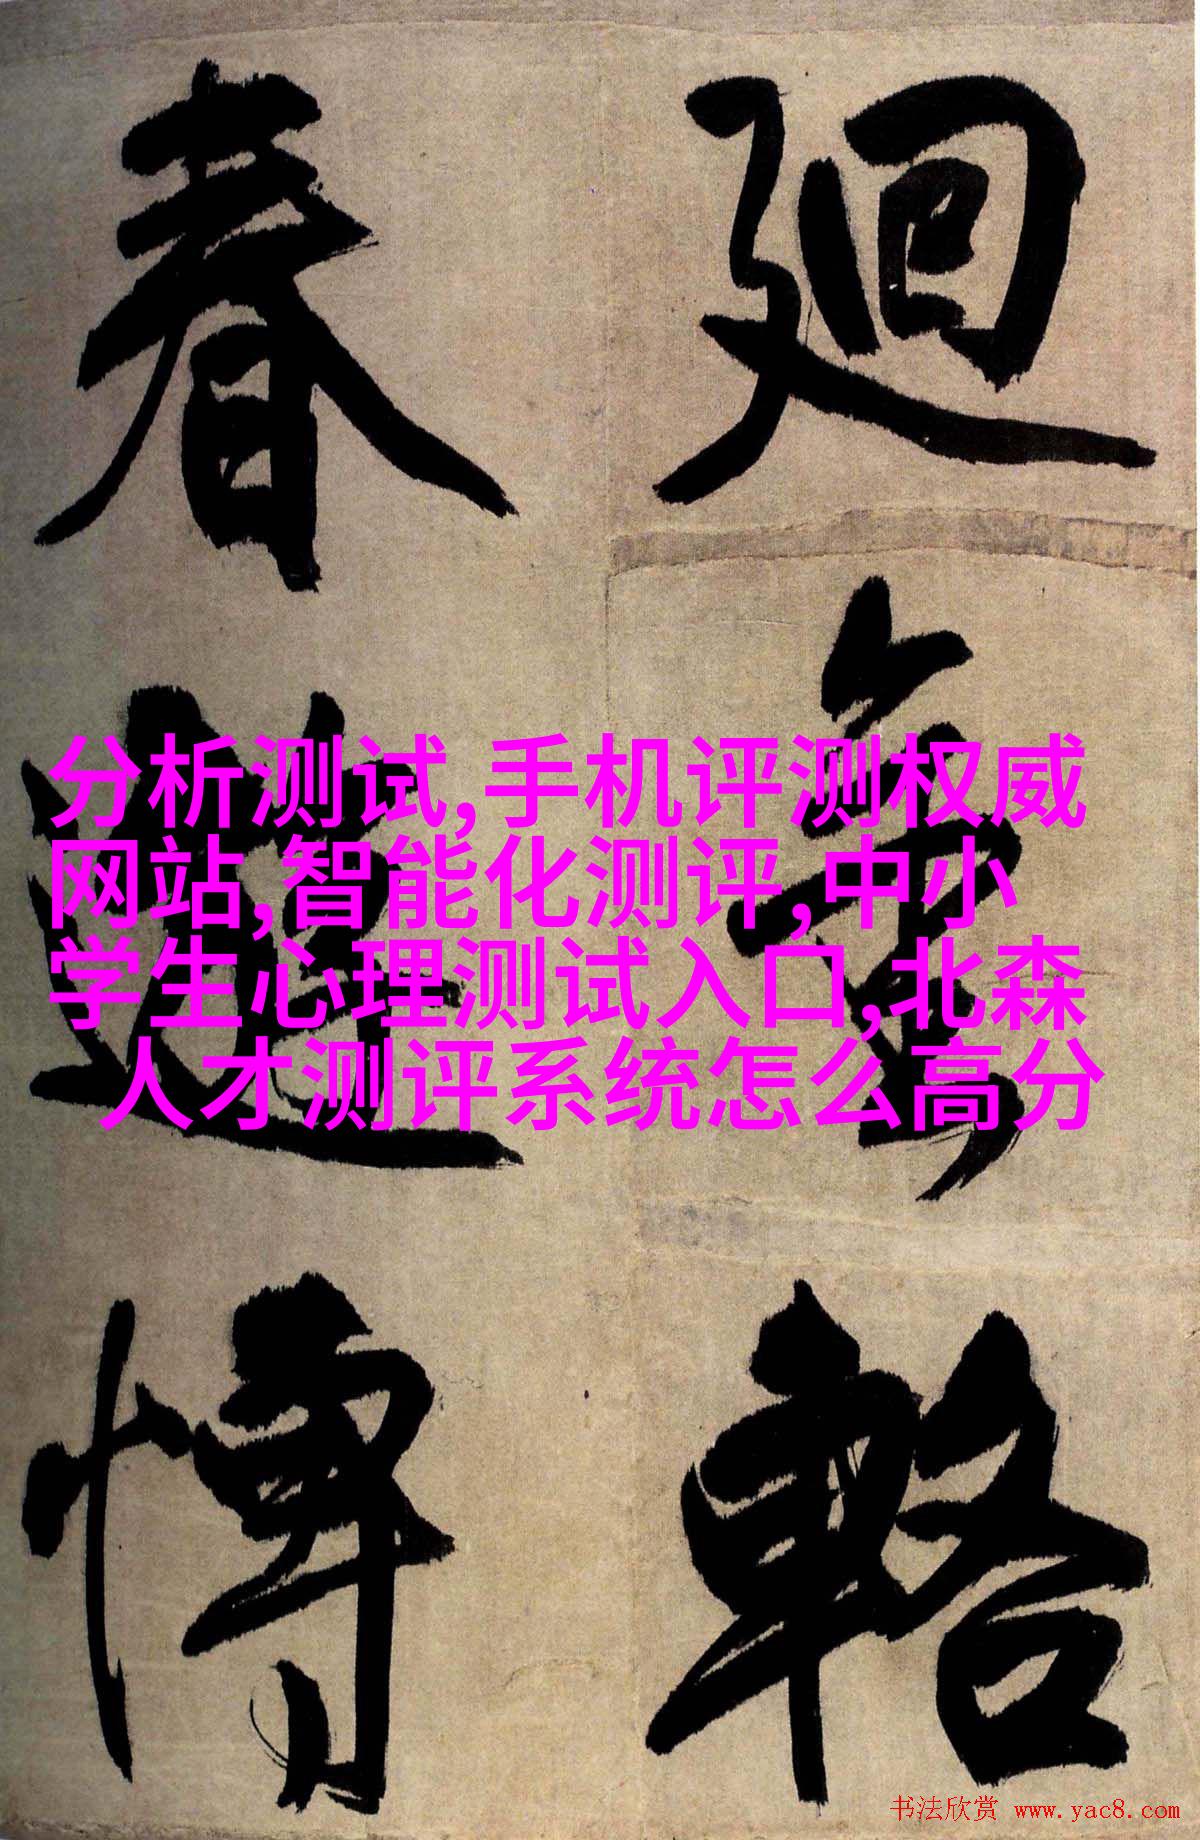 廻
輅
春
分析测试,手机评测权威
网站,智能化测评,中小
学生心理测试入口,北森
人才测评系统怎么高分
书法欣赏 www.yac8.com